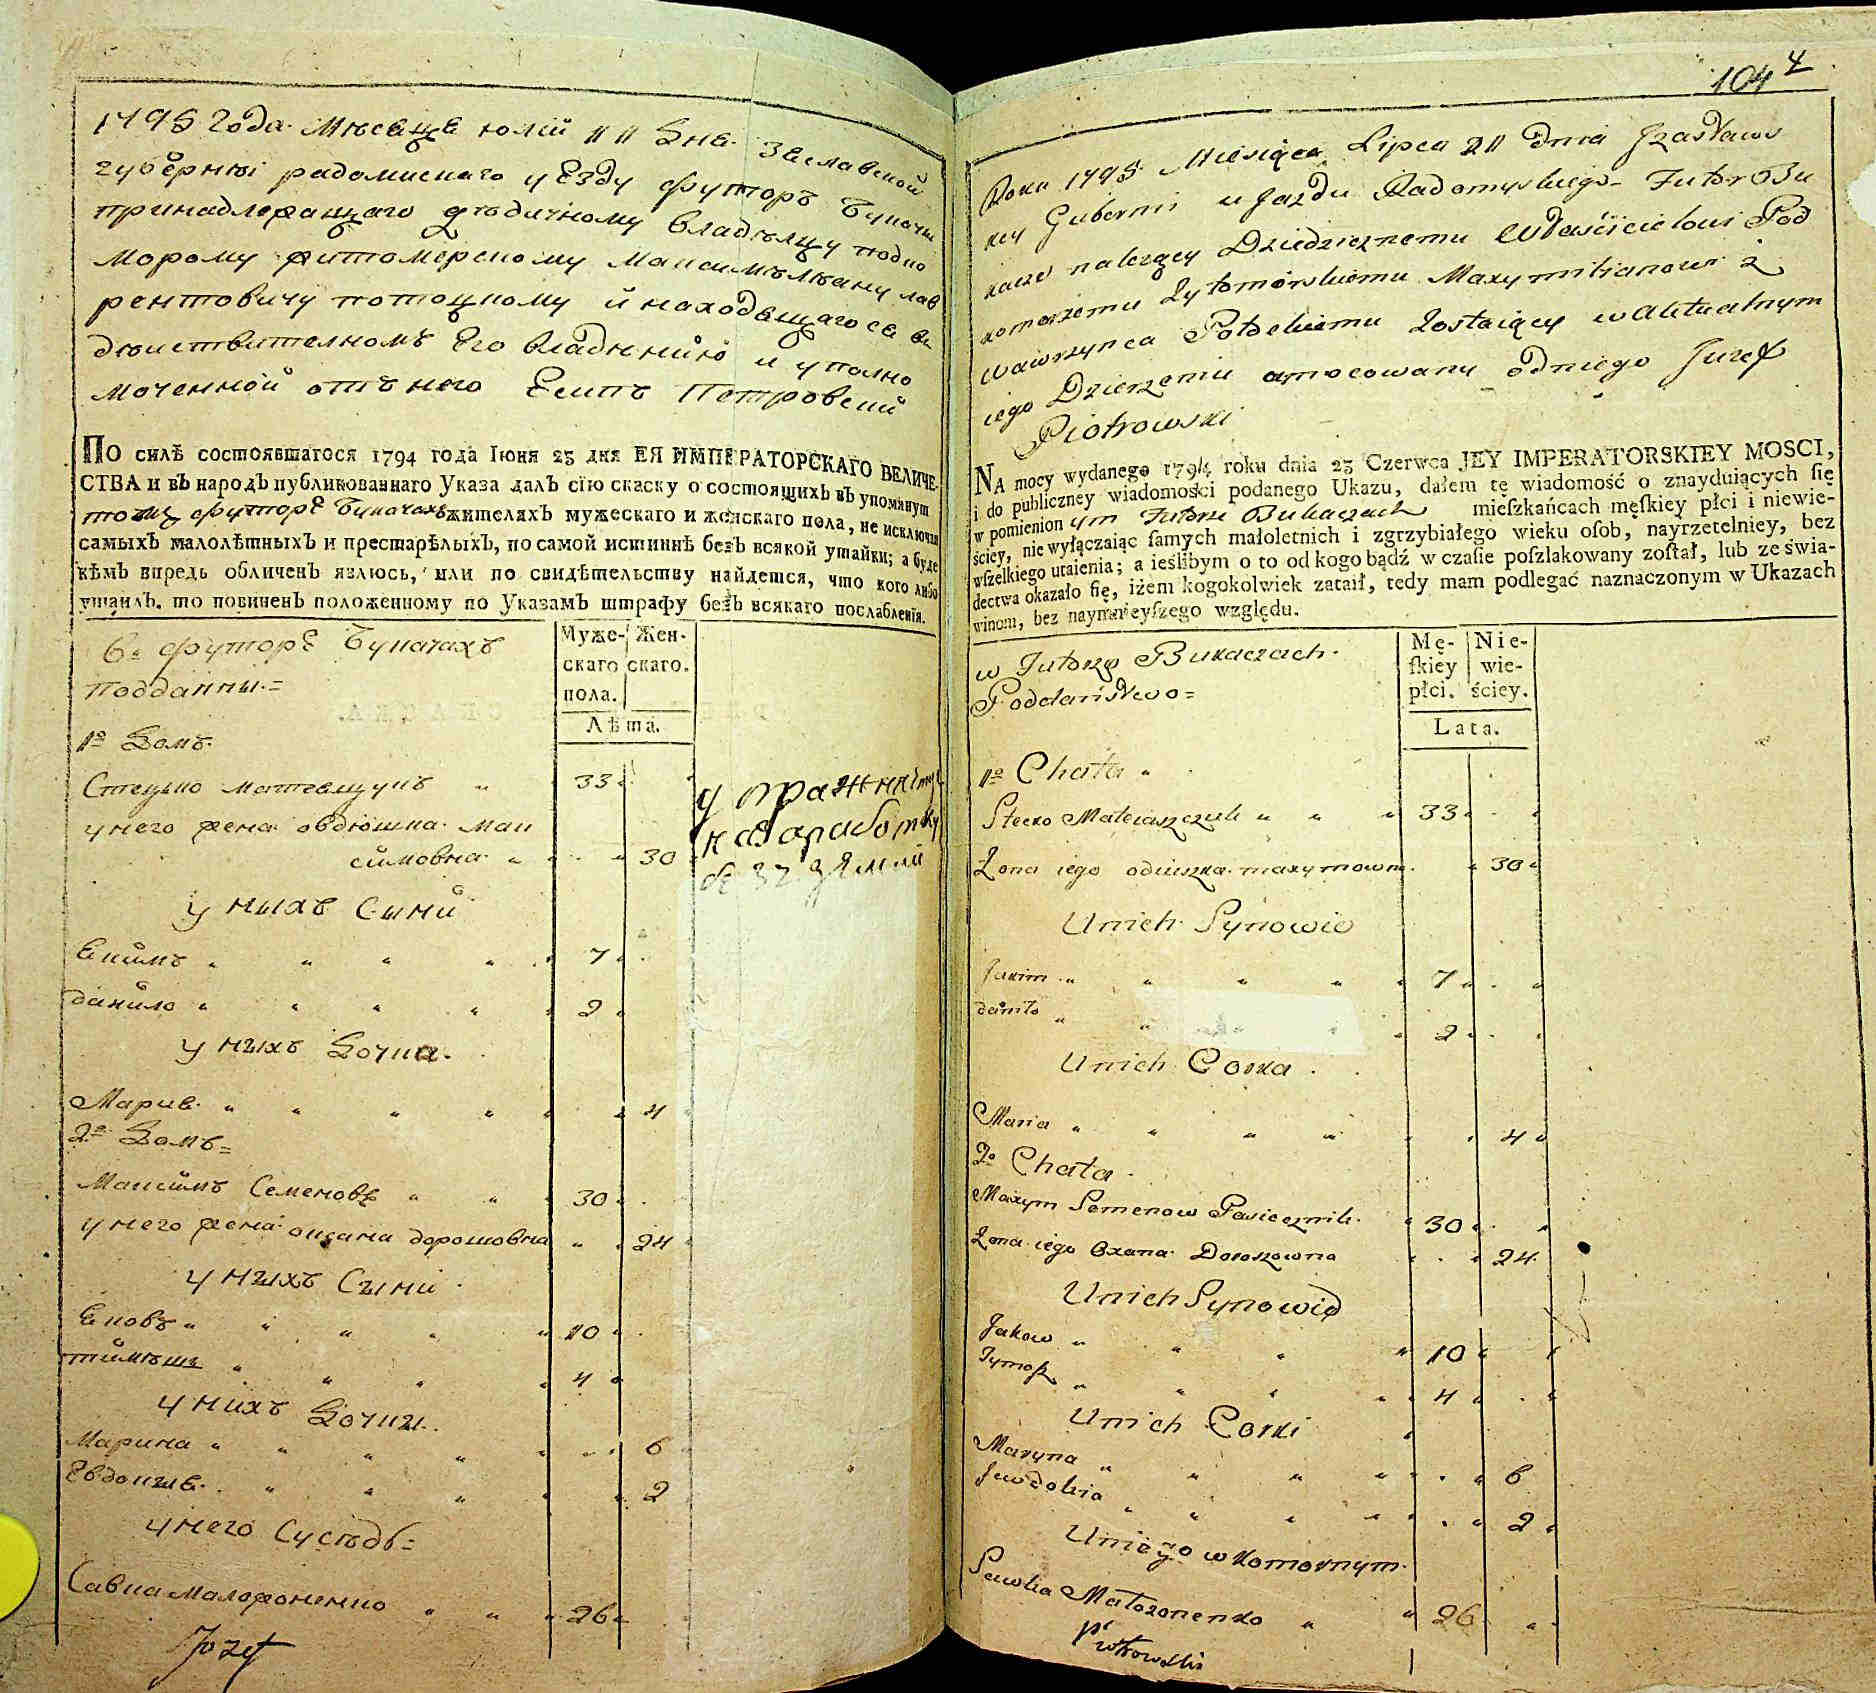 1795 Года Мѣсяца юлій 11 дня Заславской
губѣрніи радомискаго уѣзду футоръ Букачи
принадлежащаго дѣдичному владѣлцу подко
морому житомерскому Максимѣліану лав
рентовичу потоцкому и находящагося въ
дѣиствителномъ Его владѣніи и уполно
моченной отъ него Есипъ Петровскій
ПО силѣ состоявшагося 1794 года Іюня 23 дня ЕЯ ИМПЕРАТОРСКАГО ВЕЛИЧЕ-
СТВА и въ народъ публикованнаго Указа далъ сію скаску о состоящихъ въ упомянут
томъ футорѣ Букачахъ жителяхъ мужескаго и женскаго пола, не исключая
самыхъ малолѣтныхъ и престарѣлыхъ, по самой истиннѣ безъ всякой утайки; а буде
кѣмъ впредь обличенъ явлюсь, или по свидѣтельству найдется, что кого либо
утаилъ, то повиненъ положенному по Указамъ штрафу безъ всякаго послабленія.
Муже- Жен-
скаго скаго.
пола.
Лѣта.
въ футорѣ Букачахъ
Поддании =
1º Домъ
Стецько Матеящукъ 33
у него жена овдюшка мак
симовна 30
у ныхъ Сыни
Якимъ 7
данило 2
у ныхъ Дочка
Мария 4
2º Домъ =
Максимъ Семеновъ 30
у него жена оксана дорошовна 24
у ныхъ Сыни
Яковъ 10
тимѣшъ 4
у нихъ Дочки
Марина 6
Евдокия 2
у него Сусѣдъ =
Савка Маложоненко 26
Jozef
104 4
Roku 1795 Miesiąca Lipca 11 dnia Jzasławs
kiey Gubernii ujazdu Radomyskiego Futor Bu
kacze należący Dziedzicznemu Właścicielowi Pod
komorzemu Żytomirskiemu Maxymilianowi z
Wawrzynca Potockiemu zostaiący w aktualnym
iego Dzierżeniu umocowany od niego Jozef
Piotrowski
NA mocy wydanego 1794 roku dnia 23 Czerwca JEY IMPERATORSKIEY MOSCI,
i do publiczney wiadomości podanego Ukazu, dałem tę wiadomość o znayduiących się
w pomienionym Futorze Bukaczach mieſzkańcach męſkiey płci i niewie-
ściey, nie wyłączaiąc ſamych małoletnich i zgrzybiałego wieku oſob, nayrzetelniey, bez
wſzelkiego utaienia; a ieślibym o to od kogo bądź w czaſie poſzlakowany zoſtał, lub ze świa-
dectwa okazało ſię, iżem kogokolwiek zataił, tedy mam podlegać naznaczonym w Ukazach
winom, bez naymnieyſzego względu.
Mę- Nie-
ſkiey wie-
płci. ściey.
Lata.
w Futorze Bukaczach
Poddaństwo =
1º Chata
Stecko Mateiaszczuk 33
Żona iego odiuszka maxymowna 30
U nich Synowie
Jakim 7
daniło 2
U nich Corka
Maria 4
2º Chata
Maxym Semenow Pasiecznik 30
Żona iego Oxana Doroszowna 24
U nich Synowie
Jakow 10
Tymosz 4
U nich Corki
Maryna 6
Jewdokia 2
U niego w komornym
Sawka Małożonenko 26
Piotrowski